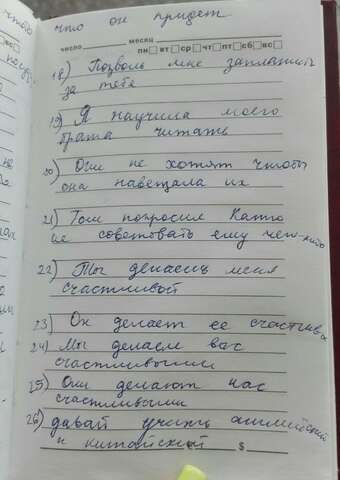 что он придет
число месяц
пн вт ср чт пт сб вс
18) Позволь мне заплатить
за тебя
19) Я научила моего
брата читать
20) Они не хотят чтобы
она навещала их
21) Том попросил Катю
не советовать ему чего-либо
22) Ты делаешь меня
счастливой
23) Он делает ее счастливой
24) Мы делаем вас
счастливыми
25) Они делают нас
счастливыми
26) давай учить английский
и китайский $